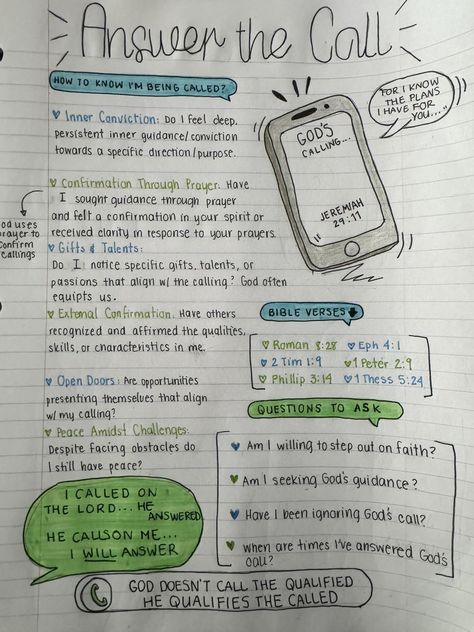 Answer the Call
HOW TO KNOW I'M BEING CALLED?
Inner Conviction: Do I feel deep,
persistent inner guidance/conviction
towards a specific direction/purpose.
Confirmation Through Prayer: Have
I sought guidance through prayer
and felt a confirmation in your spirit or
received clarity in response to your prayers.
od uses
prayer to
confirm
callings
Gifts & Talents:
Do I notice specific gifts, talents, or
passions that align w/ the calling? God often
equipts us.
External Confirmation: Have others
recognized and affirmed the qualities,
skills, or characteristics in me.
Open Doors: Are opportunities
presenting themselves that align
w/ my calling?
Peace Amidst Challenges:
Despite facing obstacles do
I still have peace?
I CALLED ON
THE LORD... HE
ANSWERED
HE CALLS ON ME...
I WILL ANSWER
GOD'S
CALLING...
JEREMIAH
29:11
"FOR I KNOW
THE PLANS
I HAVE FOR
YOU..."
BIBLE VERSES
Roman 8:28
Eph 4:1
2 Tim 1:9
1 Peter 2:9
Phillip 3:14
1 Thess 5:24
QUESTIONS TO ASK
Am I willing to step out on faith?
Am I seeking God's guidance?
Have I been ignoring God's call?
when are times I've answered God's
call?
GOD DOESN'T CALL THE QUALIFIED
HE QUALIFIES THE CALLED